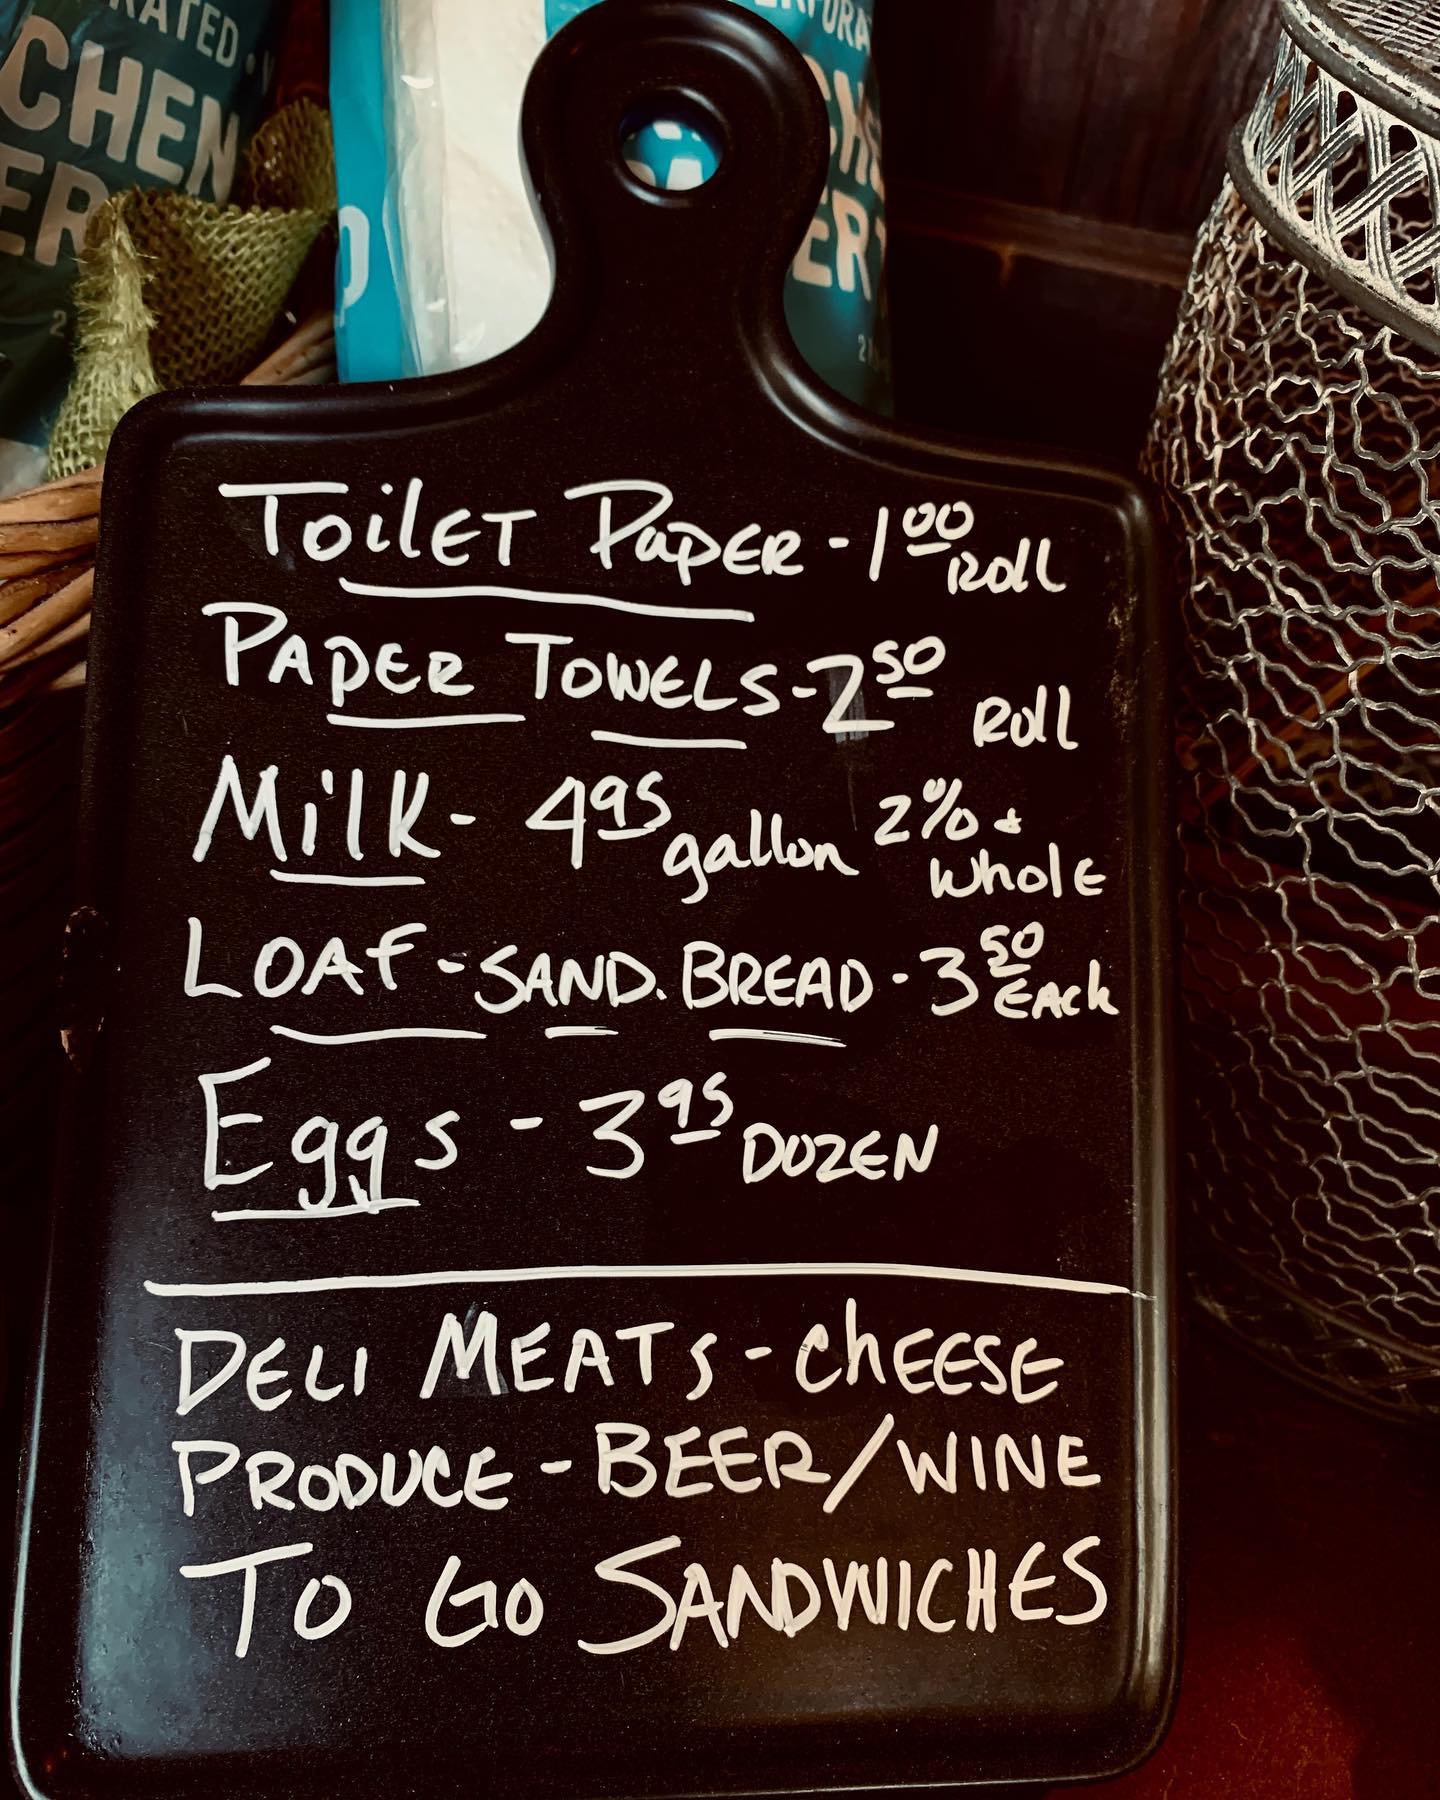 RATED
CHEN
ER
2
RFORA
CHE
ER
2
TOILET PAPER - 1 00 ROLL
PAPER TOWELS - 2 50 ROLL
Milk - 4 95 gallon 2% + Whole
LOAF - SAND. BREAD - 3 50 EACH
Eggs - 3 95 DOZEN
DELI MEATS - CHEESE
PRODUCE - BEER/WINE
TO GO SANDWICHES